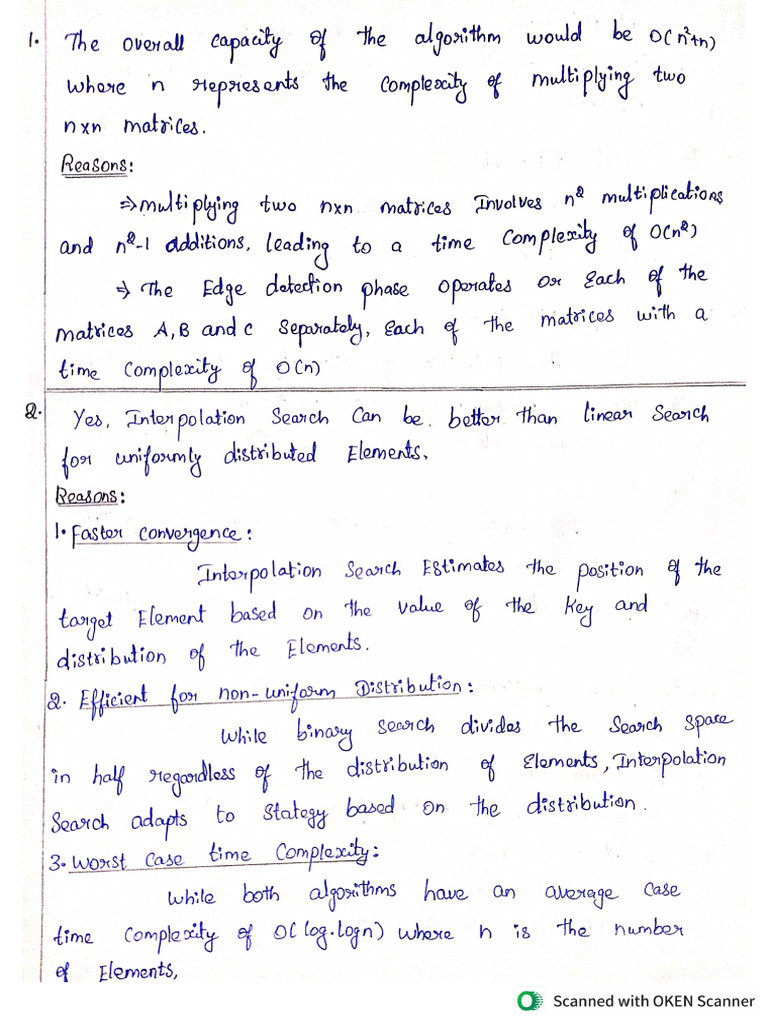 1. The overall capacity of the algorithm would be O(n²+n)
where n represents the complexity of multiplying two
nxn matrices.
Reasons:
⇒ multiplying two nxn matrices Involves n² multiplications
and n²-1 additions, leading to a time complexity of O(n²)
⇒ The Edge detection phase operates or Each of the
matrices A, B and C Separately, Each of the matrices with a
time complexity of O(n)
2. Yes, Interpolation Search Can be better than linear Search
for uniformly distributed Elements.
Reasons:
1. Faster convergence:
Interpolation Search Estimates the position of the
target Element based on the value of the key and
distribution of the Elements.
2. Efficient for non-uniform Distribution:
While binary search divides the Search space
in half regardless of the distribution of Elements, Interpolation
Search adapts to Stategy based on the distribution.
3. Worst case time Complexity:
While both algorithms have an average case
time complexity of O(log.logn) where n is the number
of Elements,
Scanned with OKEN Scanner